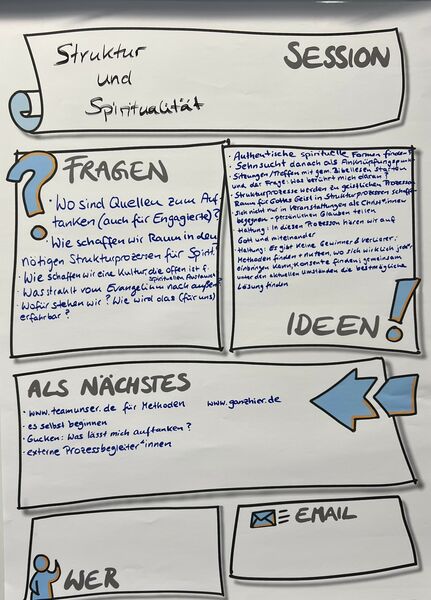 Struktur
und
Spiritualität
SESSION
FRAGEN
• Wo sind Quellen zum Auf-
tanken (auch für Engagierte)?
• Wie schaffen wir Raum in den
nötigen Strukturprozessen für Spirit.
• Wie schaffen wir eine Kultur, die offen ist f.
spirituellen Austausch
• Was strahlt vom Evangelium nach außen?
• Wofür stehen wir? Wie wird das (für uns)
erfahrbar?
• Authentische spirituelle Formen finden
• Sehnsucht danach als Anknüpfungspunkt
• Sitzungen/Treffen mit gem. Bibellesen starten
und der Frage: Was berührt mich daran?
• Strukturprozesse werden zu geistlichen Prozessen
Raum für Gottes Geist in Strukturprozessen schaffen
• Sich nicht nur in Veranstaltungen als Christ*innen
begegnen - persönlichen Glauben teilen
• Haltung: In diesen Prozessen hören wir auf
Gott und miteinander
• Haltung: Es gibt keine Gewinner & Verlierer;
Methoden finden + nutzen, wo sich wirklich jede*r
einbringen kann, Konsente finden; gemeinsam
unter den aktuellen Umständen die bestmögliche
Lösung finden
IDEEN!
ALS NÄCHSTES
• www.teamunser.de für Methoden www.ganzhier.de
• es selbst beginnen
• Gucken: Was lässt mich auftanken?
• externe Prozessbegleiter*innen
WER
EMAIL